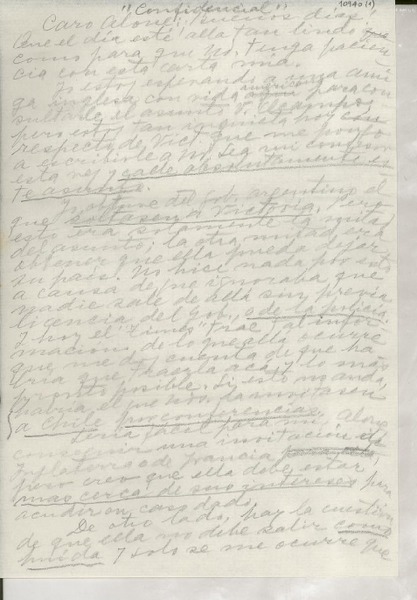 "Confidencial"
10940 (1)
Caro Alone: ¡Buenos días!
Que el día esté allá tan lindo
como para que no. Tenga pacien
cia con esta carta mía.
Yo estoy esperando a una ami
ga inglesa con vida para con
sultarle el asunto V. Ocampo;
pero estoy tan inquieta hoy con
respecto de Vict. que me pongo
a escribirle a Ud. Sea mi confesor
esta vez y calle absolutamente es
te asunto.
Yo obtuve del Gob. argentino el
que soltasen a Victoria. Pero
esto era solamente la mitad
del asunto; la otra mitad era
obtener que ella pueda dejar
su país. No hice nada por esto
a causa de que ignoraba que
nadie sale de allá sin previa
licencia del Gob., o de la policía.
Y hoy el "Times" trae tal infor
mación de lo que allá ocurre
que me doy cuenta de que ha
bría que traerla acá, y lo más
pronto posible. Si esto no anda,
habría el que la invitasen
a Chile por conferencias.
Sería fácil para mí, Alone,
conseguir una invitación de
Inglaterra o de Francia
pero creo que ella debe estar
más cerca de sus intereses para
acudir en caso dado.
De otro lado, hay la cuestión
de que ella no debe salir como
huída y solo se me ocurre que